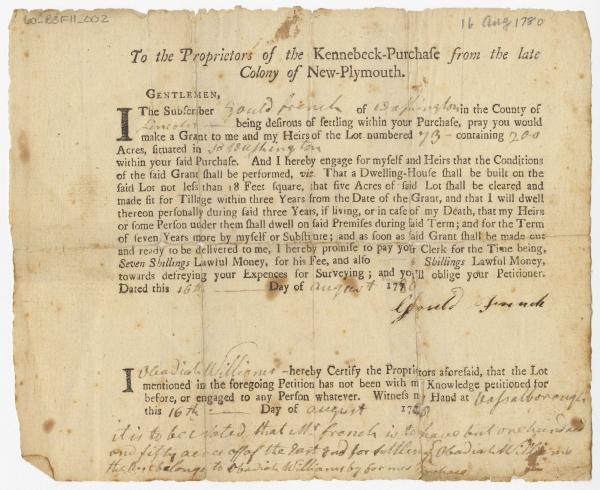 60-83F11_002
16 Aug 1780
To the Proprietors of the Kennebeck-Purchase from the late
Colony of New-Plymouth.
GENTLEMEN,
I The Subscriber Gould French of Washington in the County of
Lincoln being desirous of settling within your Purchase, pray you would
make a Grant to me and my Heirs of the Lot numbered 73 - containing 200
Acres, situated in sd Washington
within your said Purchase. And I hereby engage for myself and Heirs that the Conditions
of the said Grant shall be performed, viz. That a Dwelling-House shall be built on the
said Lot not less than 18 Feet square, that five Acres of said Lot shall be cleared and
made fit for Tillage within three Years from the Date of the Grant, and that I will dwell
thereon personally during said three Years, if living, or in case of my Death, that my Heirs
or some Person under them shall dwell on said Premises during said Term; and for the Term
of seven Years more by myself or Substitute; and as soon as said Grant shall be made out
and ready to be delivered to me, I hereby promise to pay your Clerk for the Time being,
Seven Shillings Lawful Money, for his Fee, and also Shillings Lawful Money,
towards defreying your Expences for Surveying; and you'll oblige your Petitioner.
Dated this 16th Day of august 1780
Gould French
I Obadiah Williams hereby Certify the Proprietors aforesaid, that the Lot
mentioned in the foregoing Petition has not been with my Knowledge petitioned for
before, or engaged to any Person whatever. Witness my Hand at Vassalborough
this 16th Day of august 178
it is to be Noted that Mr French is to have but one hundred
and fifty acres off of the East End for Settling Obadiah Williams
the Rest belongs to Obadiah Williams by former